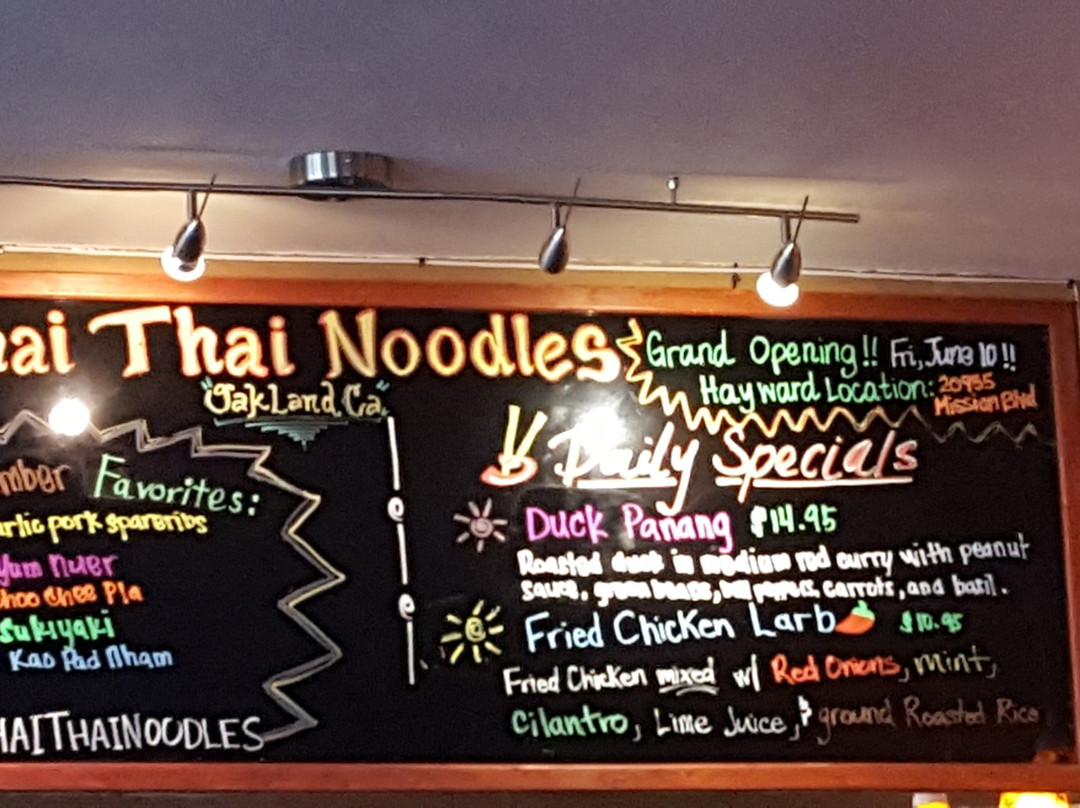 hai Thai Noodles
"Oakland, Ca"
Grand Opening!! Fri, June 10!!
Hayward Location: 20955
Mission Blvd
mber Favorites:
arlic pork spareribs
Yum Nuer
hoo Chee Pla
Sukiyaki
Kao Pad Nham
HAITHAINOODLES
Daily Specials
Duck Panang $14.95
Roasted duck in medium red curry with peanut
sauce, green beans, bell peppers, carrots, and basil.
Fried Chicken Larb $10.95
Fried Chicken mixed w/ Red Onions, mint,
Cilantro, Lime Juice, & ground Roasted Rice